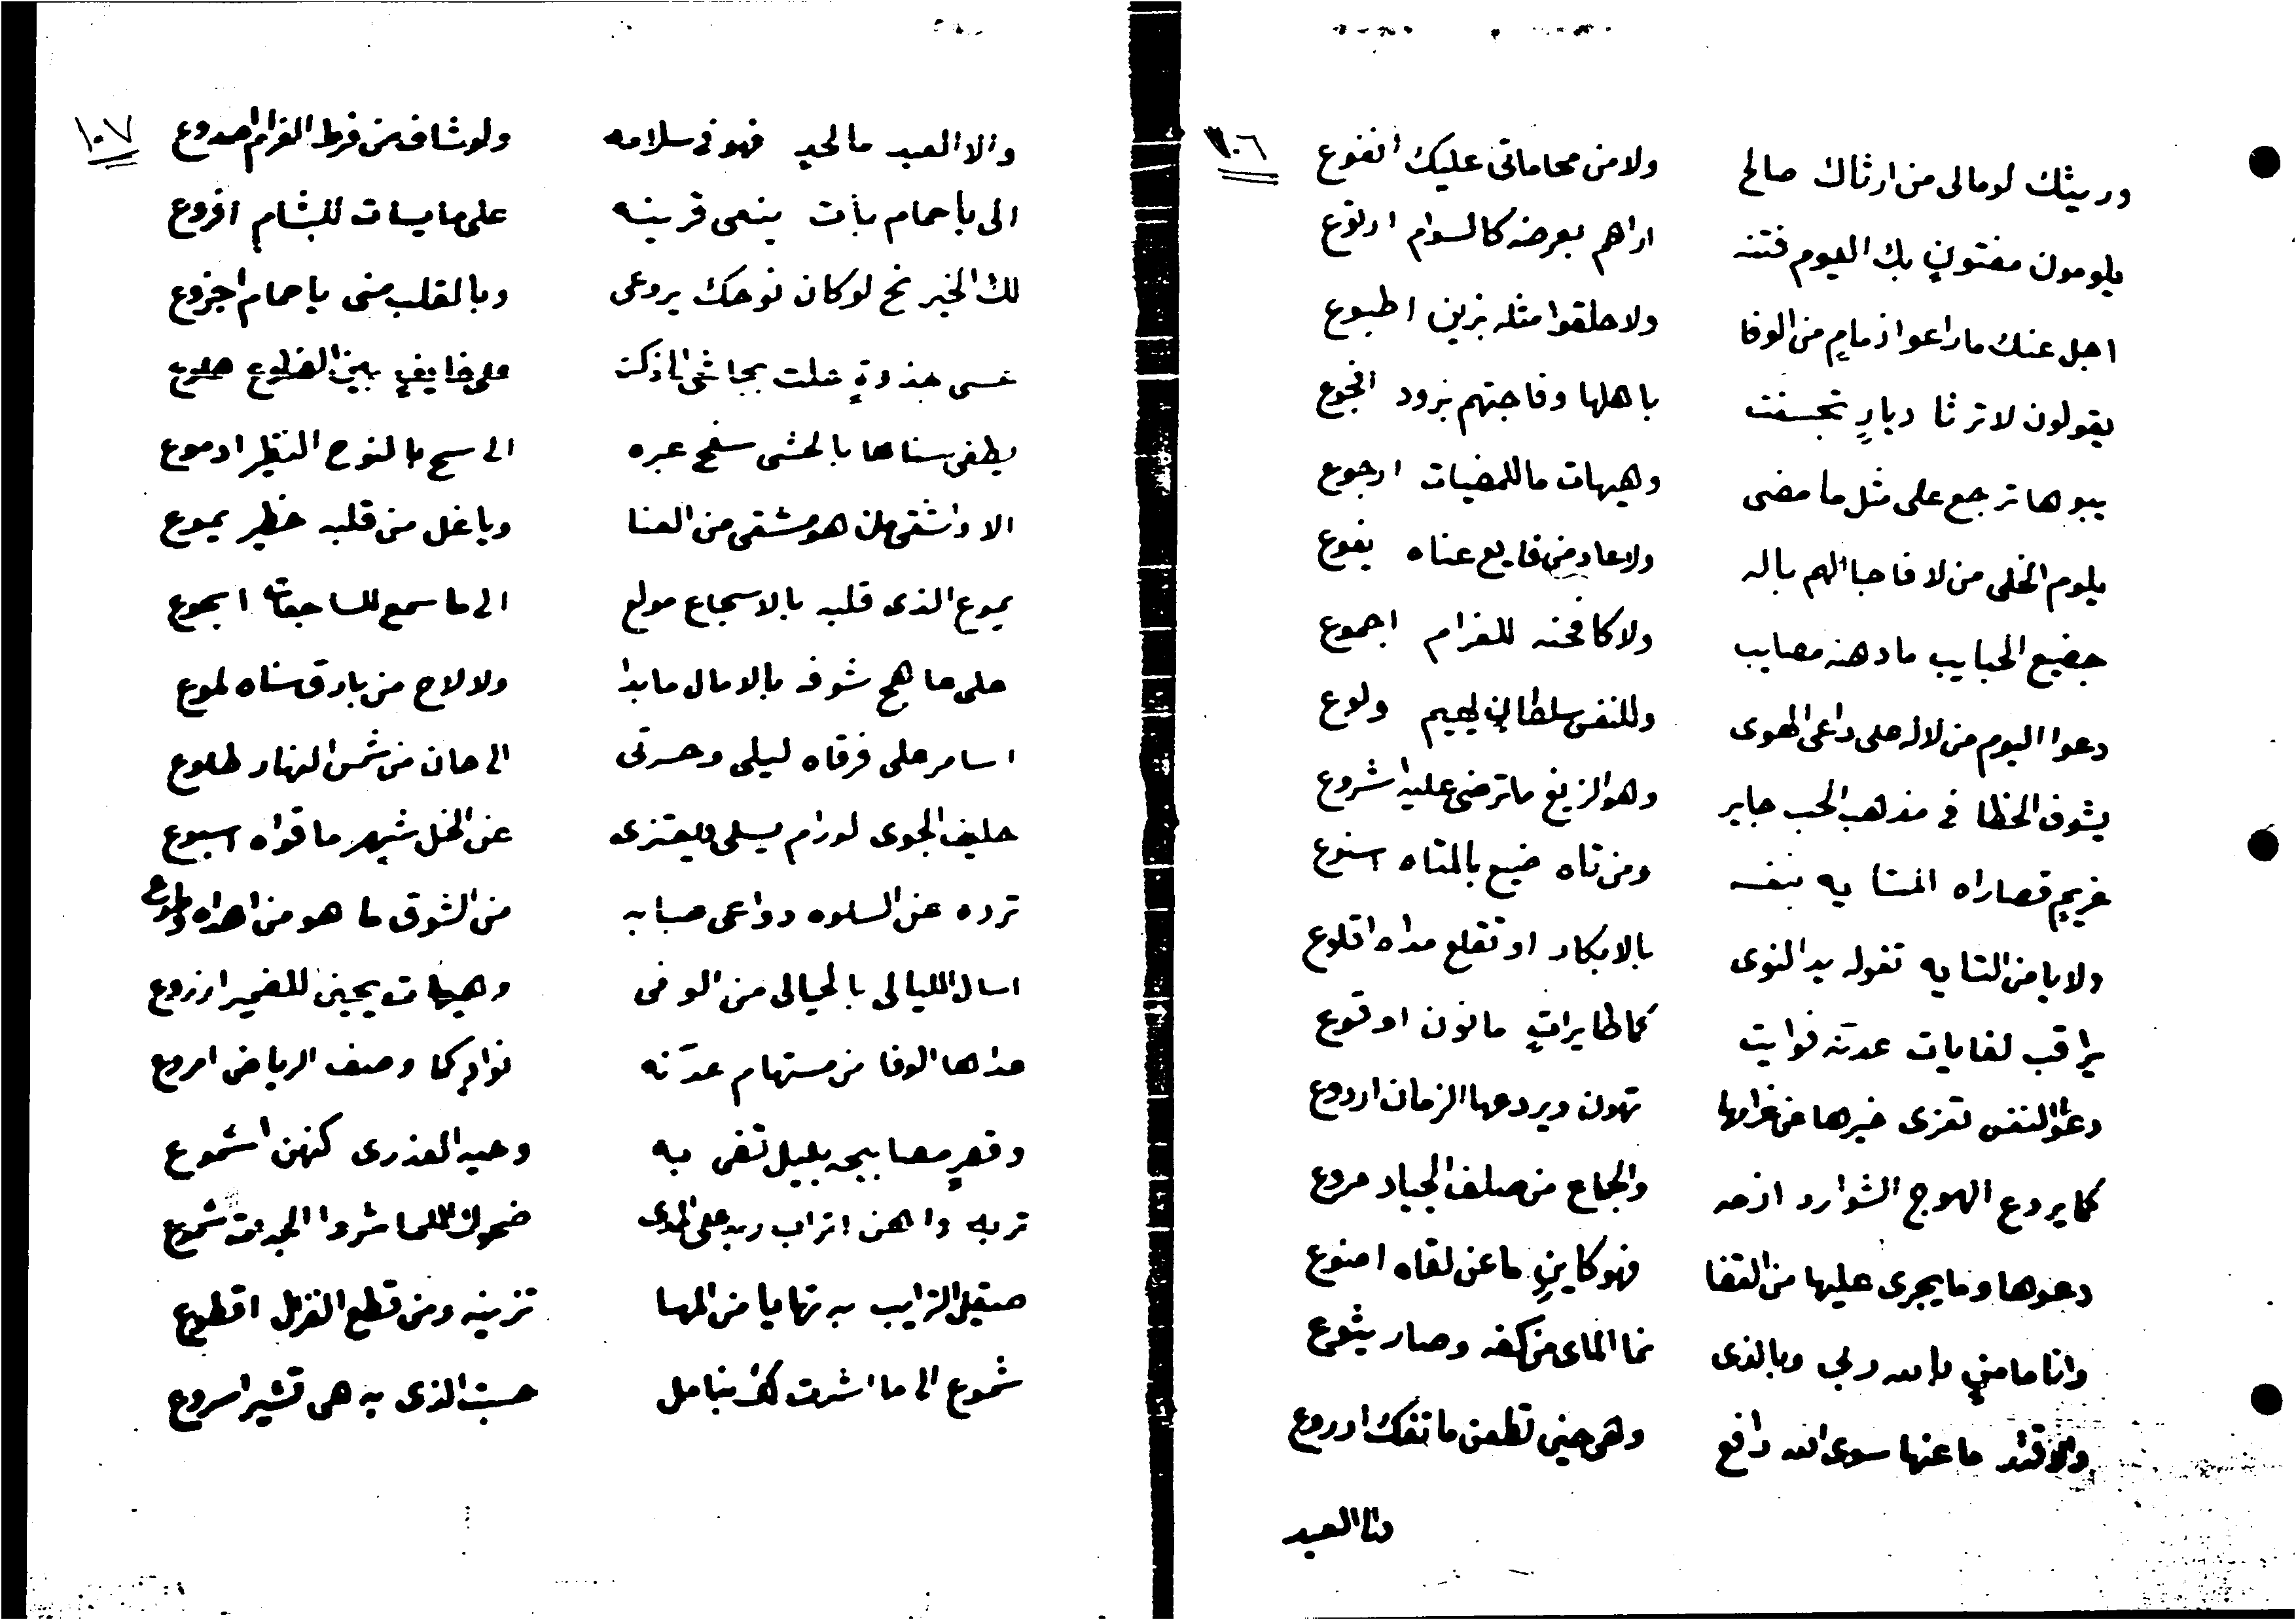 ١٠٦
وريثك لومالى من ارثاك صالح ولا من محاماتى عليك انفوع
يلومون مفتونٍ بك اليوم فتنه اراهم بعرضه كالسوام ارتوع
اجل عنك ما راعوا ذمامٍ من الوفا ولا خلقوا مثله بزين اطبوع
يقولون لا ترثا ديارٍ تخسفت باهلها وفاجتهم بزود افجوع
يبوها ترجع على مثل ما مضى وهيهات ما للمضيات ارجوع
يلوم الخلى من لا فاجا الهم باله ولا عاد من فايع عناه يفوع
جضيع الحبايب ما دهنه مصايب ولا كافحنه للغرام اجموع
دعوا اليوم من لاله على داعى الهوى وللنفس سلطانٍ يهيم ولوع
يشوف الخطا فى مذهب الحب جاير وهو الزيغ ما ترضى عليه اشروع
غريمٍ قصاراه المتايه بنفسه ومن تاه ضيع بالمتاه اسنوع
ولا يا من التايه تغوله يد النوى بالابكار او تقلع مداه اقلوع
يراقب لغايات عدته فوايت كما طايراتٍ ما نون اوقوع
دعوا النفس تعزى غيرها عن غرامها تهون ويردعها الزمان اردوع
كما يردع الهوج الشوارد ازمه والجماع من صلف الجياد مروع
دعوها وما يجرى عليها من القضا فهو كاينٍ ما عن لقاه امنوع
وانا مامنٍ بالله ربى وبالذى نما الماى من كفه وصار يثوع
ما عنها سوى الله دافع وهى حينى تطعن ما تفك ادروع
وانا العبد
١٠٧
والا العبد مالحيد فهو فى سلامه ولو شاف من فرط الغرام اصدوع
الى يا حمام بات ينعى قرينه على مايسات للبشام افروع
لك الخير نح لو كان نوحك يروعنى وبالقلب منى يا حمام اجزوع
عسى جذوةٍ شلت بجاشى الى ذكت على خايفٍ بين الضلوع هلوع
يطفى سناها بالحشى سفح عبره الى سح بالنوح النظير ادموع
الا واشقى من هو مشقى من العنا وباغل من قلبه خطير يموع
يموع الذى قلبه بالاسجاع مولع الى ما سمع للساجعات اسجوع
على ما هج شوفه بالامال ما بدا ولا لاح من بارق سناه لموع
اسامر على فرقاه ليلى وحسرتى الى حان من شمس النهار طلوع
حليف الجوى لو رام يسلى ويعتزى عن الخل شهر ما قواه اسبوع
ترده عن السلوه دواعى صبابه من الشوق ما هو من اهداه وطوع
اسال الليالى بالحيالى من الوفى وهيهات يحين للضمير ارزوع
عداها الوفا من مستهام عدّنه نوادٍ كما وصف الرياض امروع
وقصرٍ مصابيحه بليل تضى به وحيه العذرى كنهن اشموع
تربه واهن اتراب ربد على المدى شموع
صقيل الترايب به تهايا من المها تزينه ومن قطع الغزل اقطوع
شموع الى ما اشرت لك بنامل حسبت الذى به هى تشير اسروع